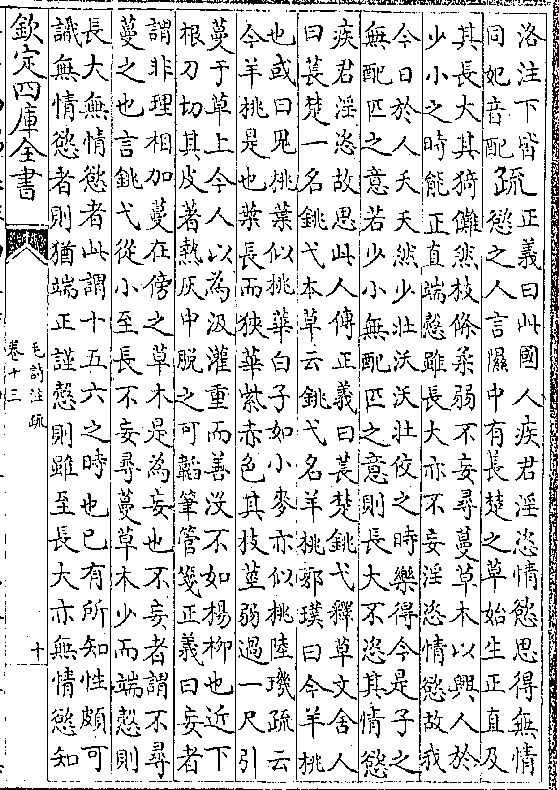 洛注下皆
同妃音配
疏
正義曰此國人疾君淫恣情慾思得無情
慾之人言隰中有長楚之草始生正直及
其長大其猗儺然枝條柔弱不妄尋蔓草木以興人於
少小之時能正直端慤雖長大亦不妄淫恣情慾故我
今日於人夭夭然少壯沃沃壯佼之時樂得今是子之
無配匹之意若少小無配匹之意則長大不恣其情慾
疾君淫恣故思此人傳正義曰萇楚銚弋釋草文舍人
曰萇楚一名銚弋本草云銚弋名羊桃郭璞曰今羊桃
也或曰鬼桃葉似桃華白子如小麥亦似桃陸璣疏云
今羊桃是也葉長而狹華紫赤色其枝莖弱過一尺引
蔓于草上今人以為汲灌重而善沒不如楊柳也近下
根刀切其皮著熱灰中脫之可韜筆管箋正義曰妄者
謂非理相加蔓在傍之草木是為妄也不妄者謂不尋
蔓之也言銚弋從小至長不妄尋蔓草木少而端慤則
長大無情慾者此謂十五六之時也已有所知性頗可
識無情慾者則猶端正謹慤則雖至長大亦無情慾知
欽定四庫全書
毛詩注疏
卷十三
十